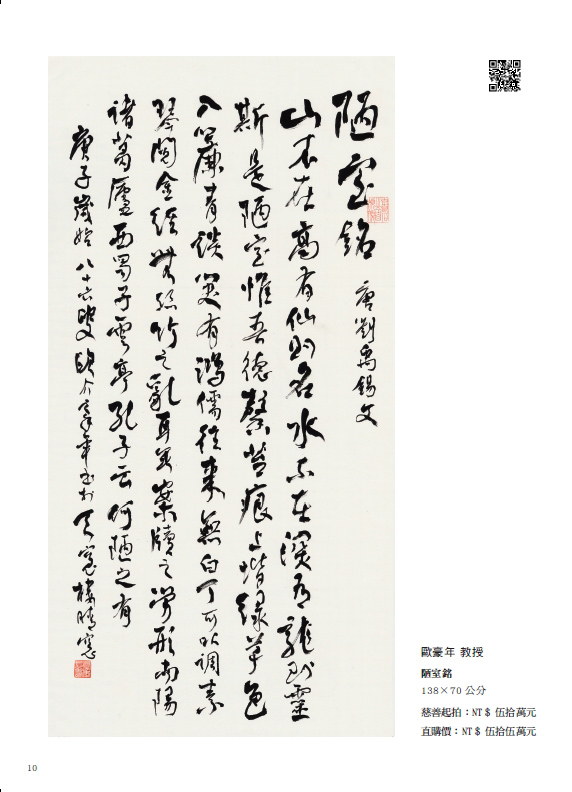 陋室銘 唐劉禹錫文
山不在高有仙則名水不在深有龍則靈
斯是陋室惟吾德馨苔痕上堦綠草色
入簾青談笑有鴻儒往來無白丁可以調素
琴閱金經無絲竹之亂耳無案牘之勞形南陽
諸葛廬西蜀子雲亭孔子云何陋之有
庚子歲始八十六叟歐介豪年書於天樓晴窓
歐豪年 教授
陋室銘
138×70 公分
慈善起拍：NT$ 伍拾萬元
直購價：NT$ 伍拾伍萬元
10